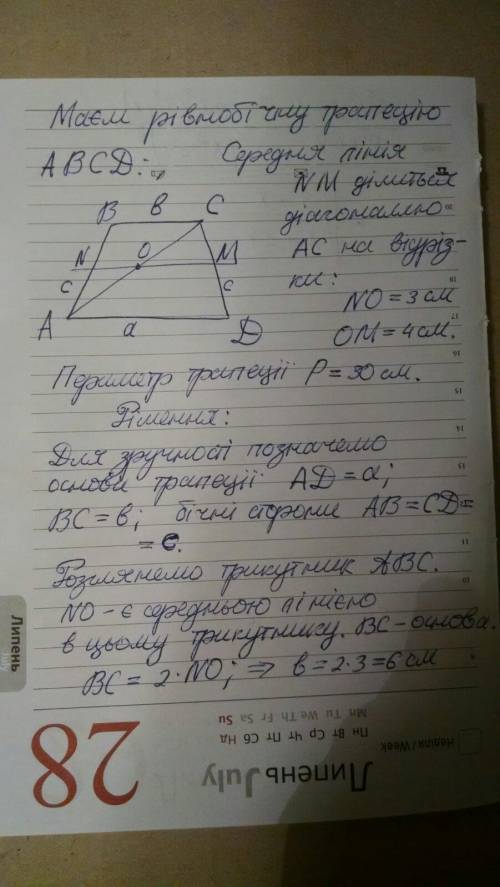 Маєм рівнобічну трапецію
ABCD: Середня лінія
NM ділиться
діагоналлю
AC на відріз-
ки:
NO = 3 см
OM = 4 см.
B в C
N O M
c c
A a D
Периметр трапеції P = 30 см.
Рішення:
Для зручності позначемо
основи трапеції AD = a;
BC = в; бічні сторони AB = CD =
= c.
Розглянемо трикутник ABC.
NO - є середньою лінією
в цьому трикутнику. BC - основа.
BC = 2·NO; ⇒ в = 2·3 = 6 см
18
17
16
15
14
13
11
10
Липень
July
28
Mn Tu We Th Fr Sa Su
Пн Вт Ср Чт Пт Сб Нд
Липень July
Неділя / Week